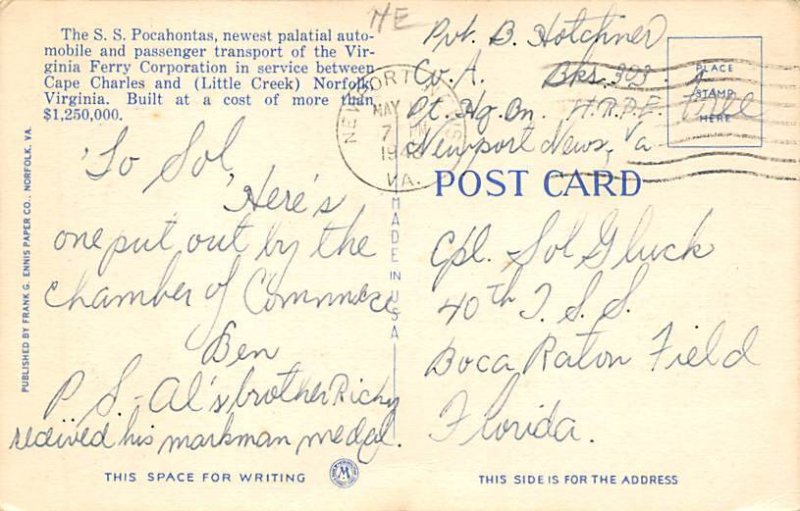 NE
The S. S. Pocahontas, newest palatial auto-
mobile and passenger transport of the Vir-
ginia Ferry Corporation in service between
Cape Charles and (Little Creek) Norfolk,
Virginia. Built at a cost of more than
$1,250,000.
MAY
7 PM
VA.
Pvt. B. Hotchner
Co. A. Bks. 303.
Dt. Hq. Bn. H.R.P.E.
Newport News, Va
PLACE
STAMP
HERE
Free
POST CARD
To Sol,
Here's
one put out by the
Chamber of Commerce
Ben
P.S.- Al's brother Richy
received his markman medal.
Cpl. Sol Gluck
40th T.S.S.
Boca Raton Field
Florida.
MADE IN USA
PUBLISHED BY FRANK G. ENNIS PAPER CO., NORFOLK, VA.
THIS SPACE FOR WRITING
THIS SIDE IS FOR THE ADDRESS